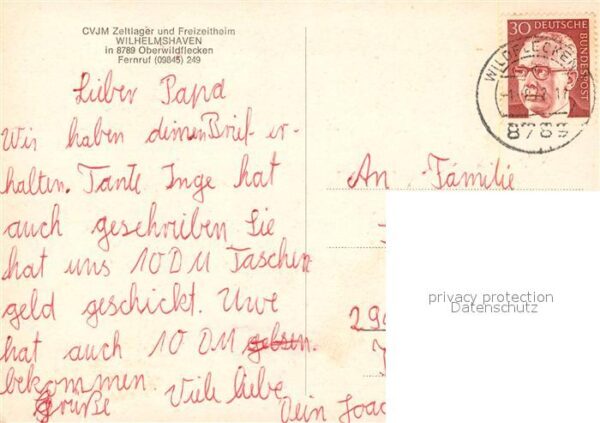 CVJM Zeltlager und Freizeitheim
WILHELMSHAVEN
in 8789 Oberwildflecken
Fernruf (09845) 249
30 DEUTSCHE BUNDESPOST
WILDFLECKEN
8789
Lieber Papa
Wir haben deinen Brief er-
halten. Tante Inge hat
auch geschrieben Sie
hat uns 10 DM Taschen
geld geschickt. Uwe
hat auch 10 DM geben.
bekommen. Viele liebe
Grüße Dein Joac
An Familie
29
privacy protection
Datenschutz